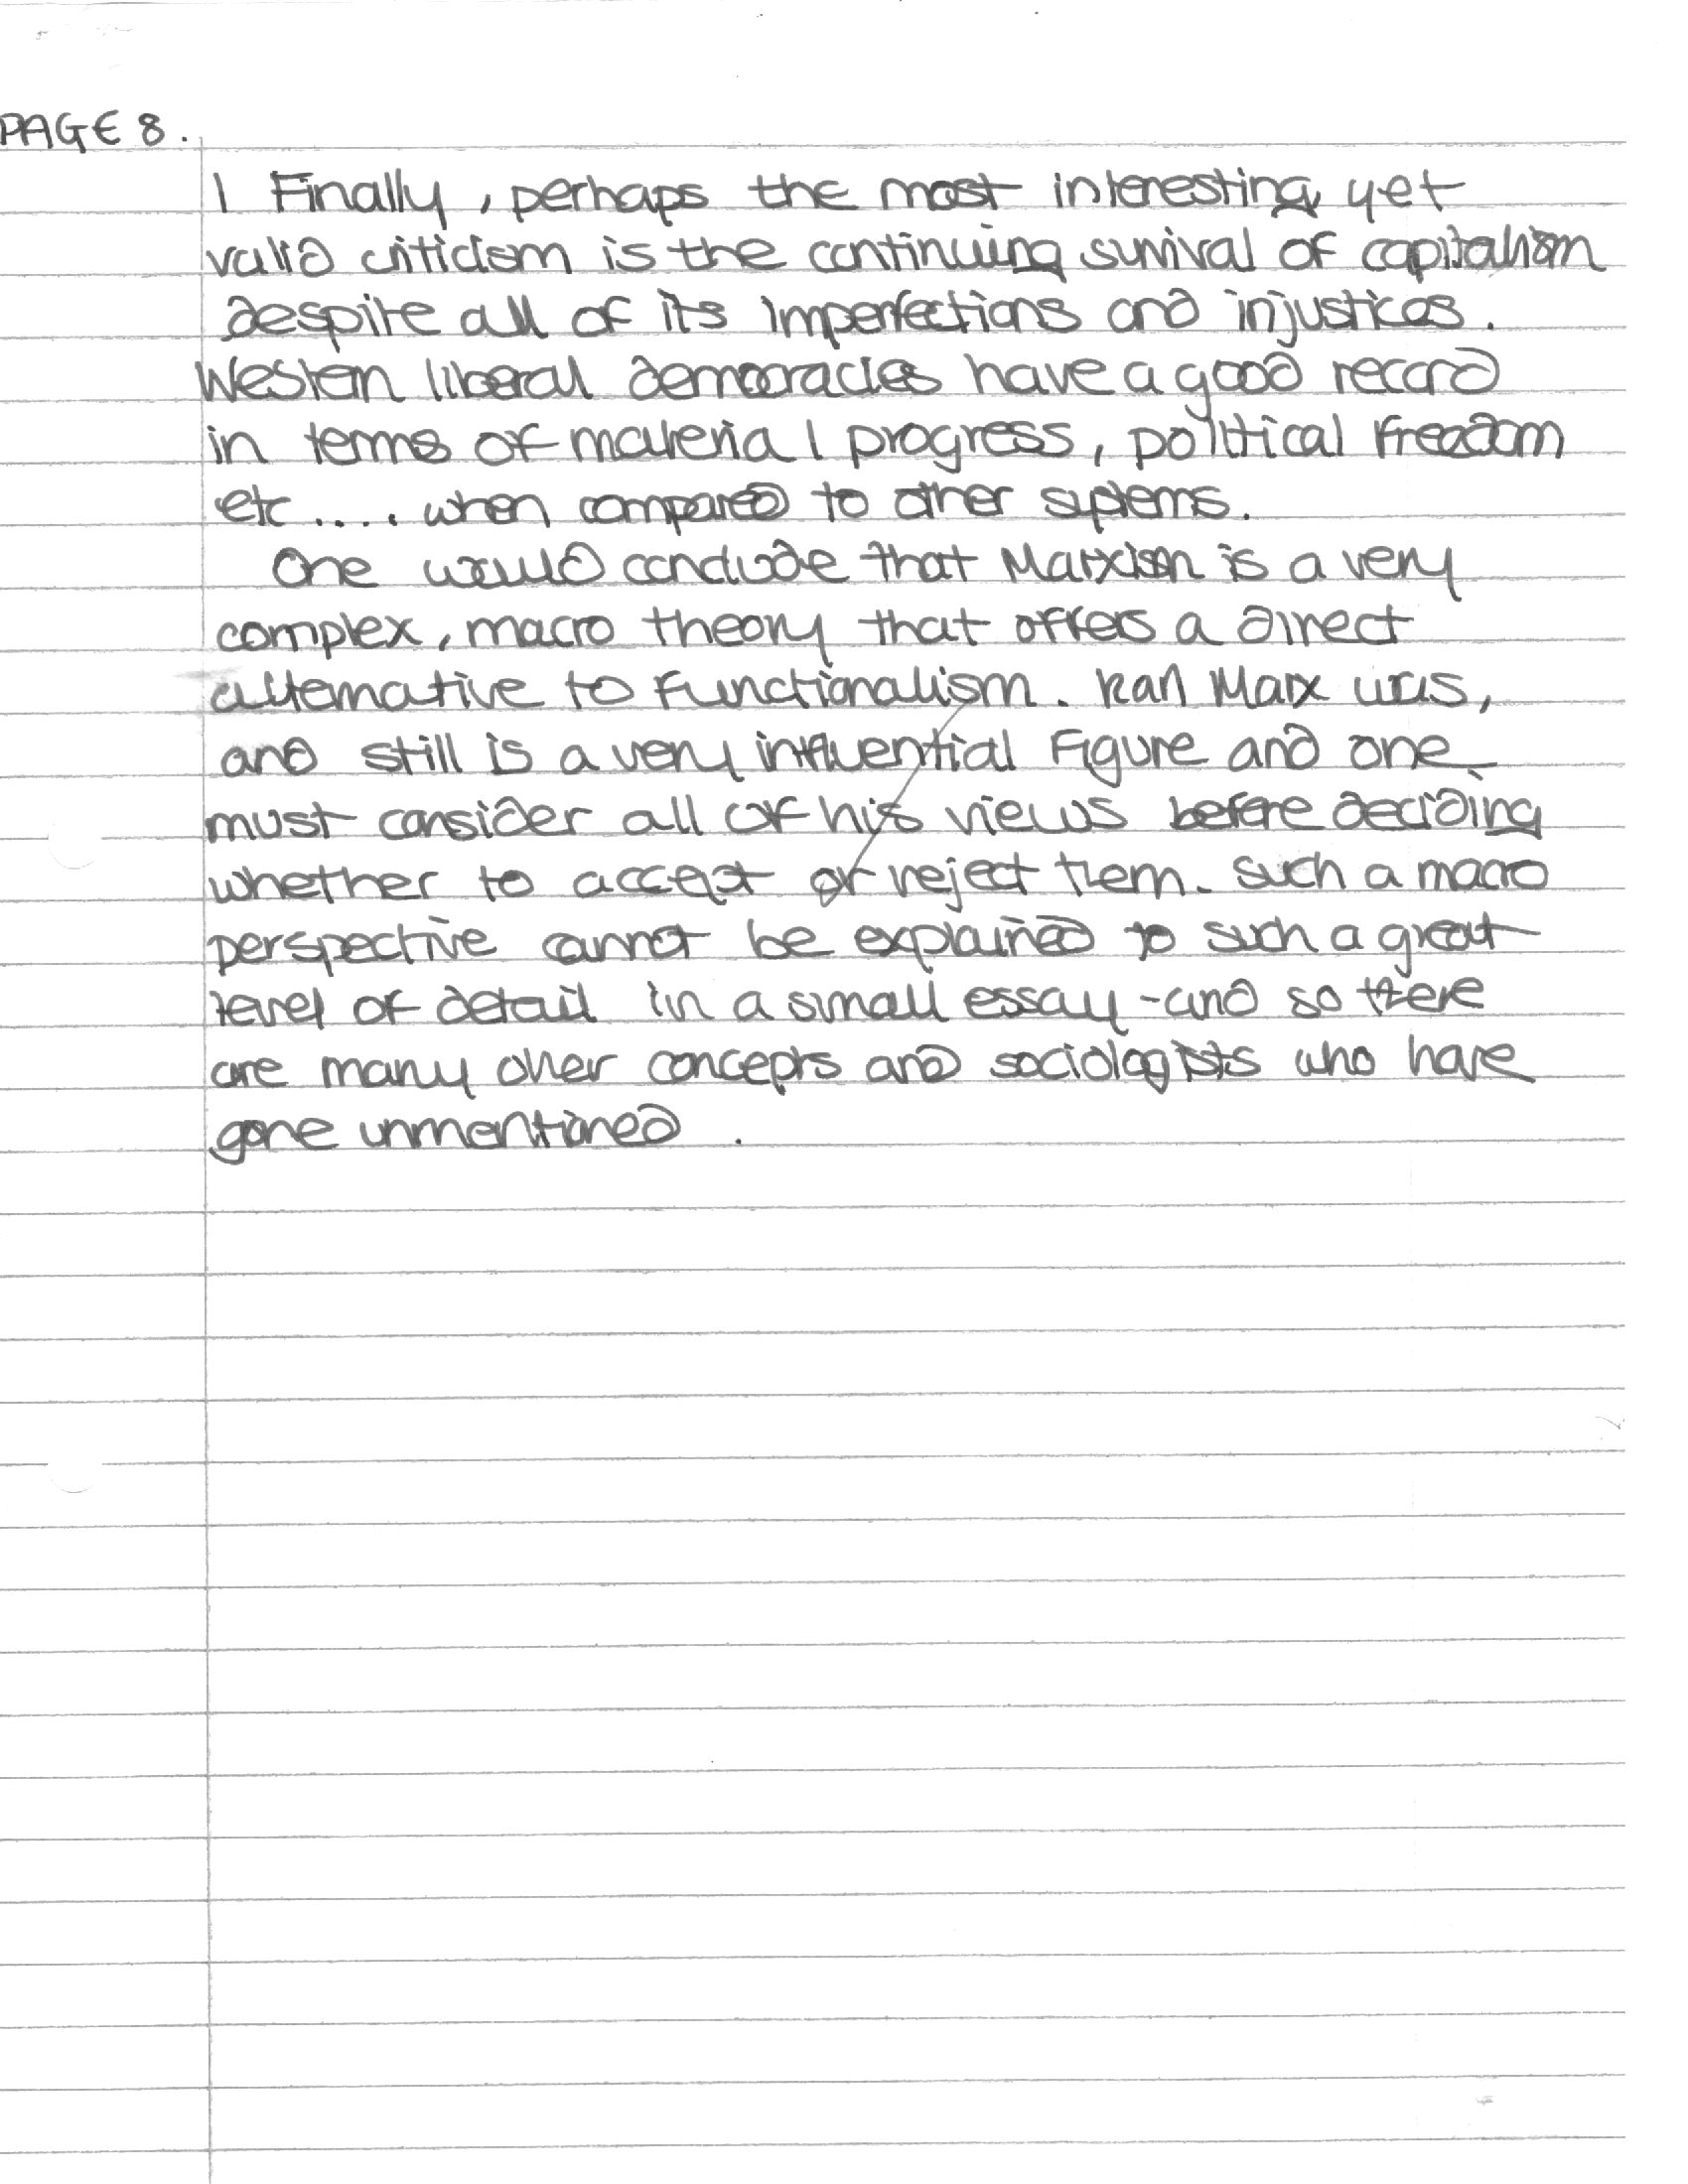 PAGE 8.
| Finally, perhaps the most interesting yet
valid criticism is the continuing survival of capitalism
despite all of its imperfections and injustices.
Western liberal democracies have a good record
in terms of material progress, political freedom
etc.... when compared to other systems.
One would conclude that Marxism is a very
complex, macro theory that offers a direct
alternative to Functionalism. Karl Marx was,
and still is a very influential Figure and one
must consider all of his views before deciding
whether to accept or reject them. Such a macro
perspective cannot be explained to such a great
level of detail in a small essay - and so there
are many other concepts and sociologists who have
gone unmentioned.